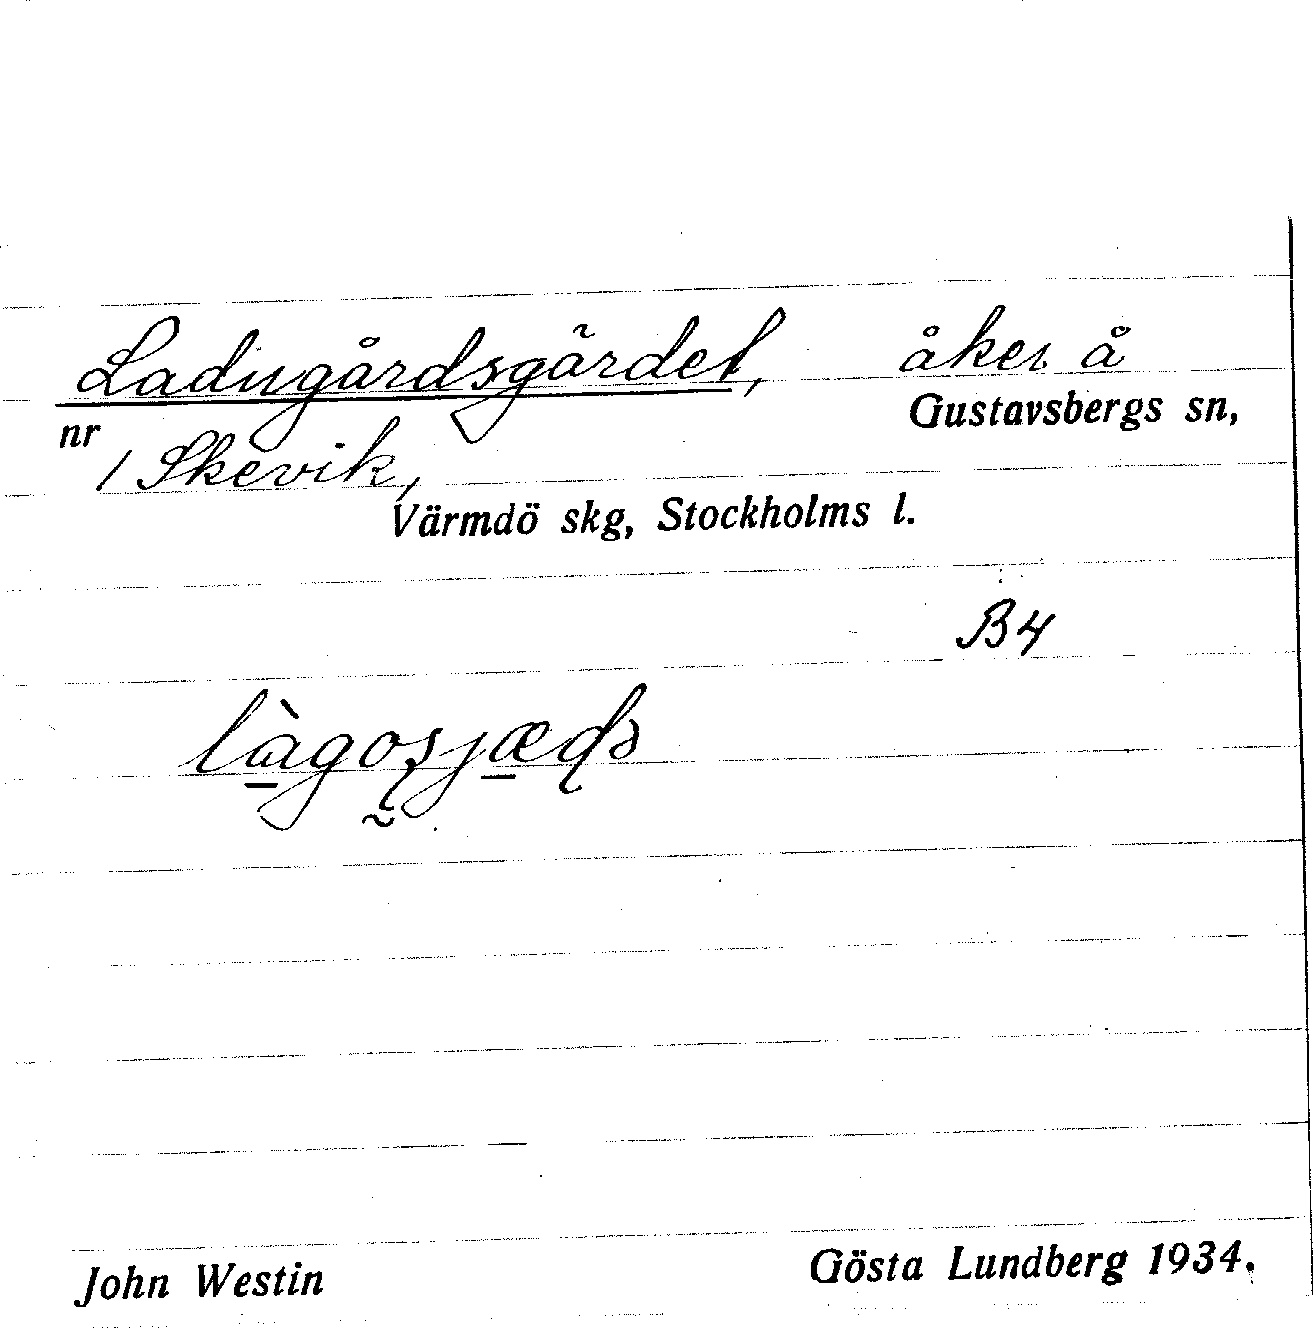 Ladugårdsgärdet, åker å
Gustavsbergs sn,
nr
1 Skevik,
Värmdö skg, Stockholms l.
B4
John Westin
Gösta Lundberg 1934.